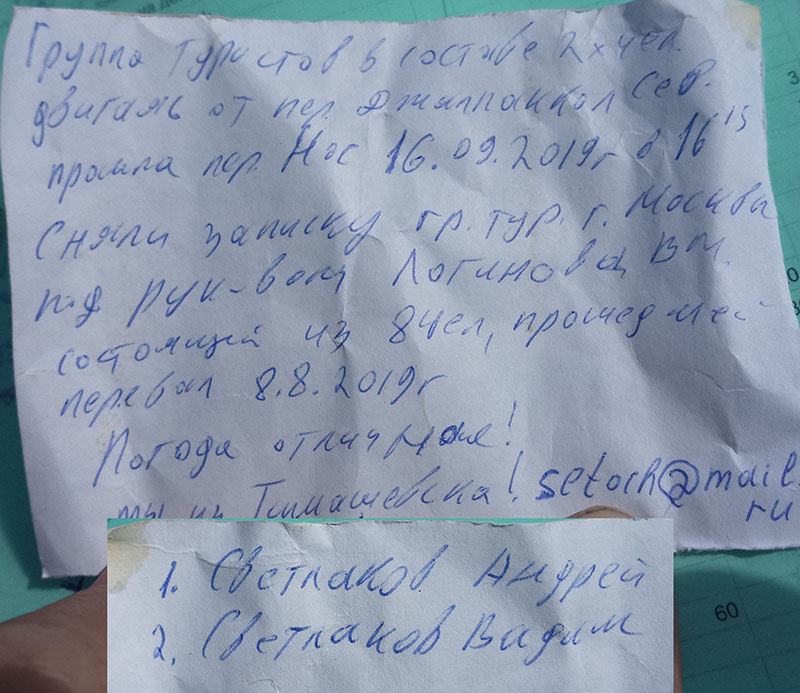 Группа туристов в составе 2х чел.
двигаясь от пер. Джалпаккол Сев.
прошла пер. Нос 16.09.2019г в 16 15
Сняли записку гр. тур. г. Москвы
под рук-вом Логинова В.М.
состоящей из 8 чел, прошедшей
перевал 8.8.2019г
Погода отличная!
мы из Тимашевска! setoch@mail.
ru
1. Светлаков Андрей
2. Светлаков Вадим
60